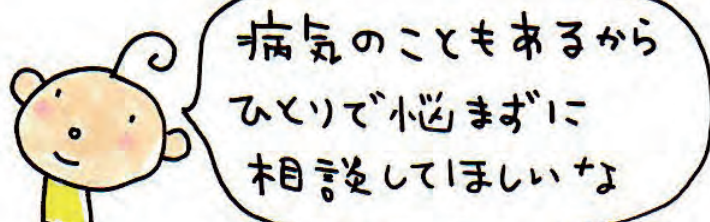 病気のこともあるから
ひとりで悩まずに
相談してほしいな